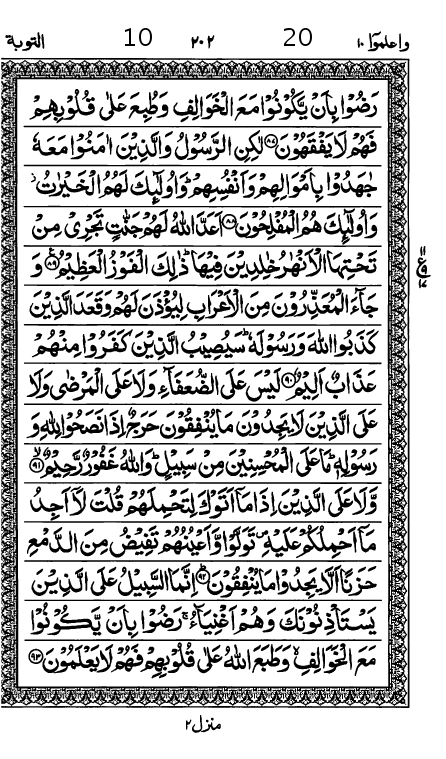 واعلموا ١٠ 20 ٢٠٢ 10 التوبة
رَضُوْا بِاَنْ يَّكُوْنُوْا مَعَ الْخَوَالِفِ وَطُبِعَ عَلٰى قُلُوْبِهِمْ
فَهُمْ لَا يَفْقَهُوْنَ ۝٨٧ لٰكِنِ الرَّسُوْلُ وَالَّذِيْنَ اٰمَنُوْا مَعَهٗ
جٰهَدُوْا بِاَمْوَالِهِمْ وَاَنْفُسِهِمْ ؕ وَاُولٰٓئِكَ لَهُمُ الْخَيْرٰتُ ؗ
وَاُولٰٓئِكَ هُمُ الْمُفْلِحُوْنَ ۝٨٨ اَعَدَّ اللّٰهُ لَهُمْ جَنّٰتٍ تَجْرِيْ مِنْ
تَحْتِهَا الْاَنْهٰرُ خٰلِدِيْنَ فِيْهَا ؕ ذٰلِكَ الْفَوْزُ الْعَظِيْمُ ۝٨٩ وَ
جَآءَ الْمُعَذِّرُوْنَ مِنَ الْاَعْرَابِ لِيُؤْذَنَ لَهُمْ وَقَعَدَ الَّذِيْنَ
كَذَبُوا اللّٰهَ وَرَسُوْلَهٗ ؕ سَيُصِيْبُ الَّذِيْنَ كَفَرُوْا مِنْهُمْ
عَذَابٌ اَلِيْمٌ ۝٩٠ لَيْسَ عَلَى الضُّعَفَآءِ وَلَا عَلَى الْمَرْضٰى وَلَا
عَلَى الَّذِيْنَ لَا يَجِدُوْنَ مَا يُنْفِقُوْنَ حَرَجٌ اِذَا نَصَحُوْا لِلّٰهِ وَ
رَسُوْلِهٖ ؕ مَا عَلَى الْمُحْسِنِيْنَ مِنْ سَبِيْلٍ ؕ وَاللّٰهُ غَفُوْرٌ رَّحِيْمٌ ۝٩١
وَّلَا عَلَى الَّذِيْنَ اِذَا مَآ اَتَوْكَ لِتَحْمِلَهُمْ قُلْتَ لَآ اَجِدُ
مَآ اَحْمِلُكُمْ عَلَيْهِ ۪ تَوَلَّوْا وَّاَعْيُنُهُمْ تَفِيْضُ مِنَ الدَّمْعِ
حَزَنًا اَلَّا يَجِدُوْا مَا يُنْفِقُوْنَ ۝٩٢ اِنَّمَا السَّبِيْلُ عَلَى الَّذِيْنَ
يَسْتَاْذِنُوْنَكَ وَهُمْ اَغْنِيَآءُ ۚ رَضُوْا بِاَنْ يَّكُوْنُوْا
مَعَ الْخَوَالِفِ ۙ وَطَبَعَ اللّٰهُ عَلٰى قُلُوْبِهِمْ فَهُمْ لَا يَعْلَمُوْنَ ۝٩٣
منزل ٢